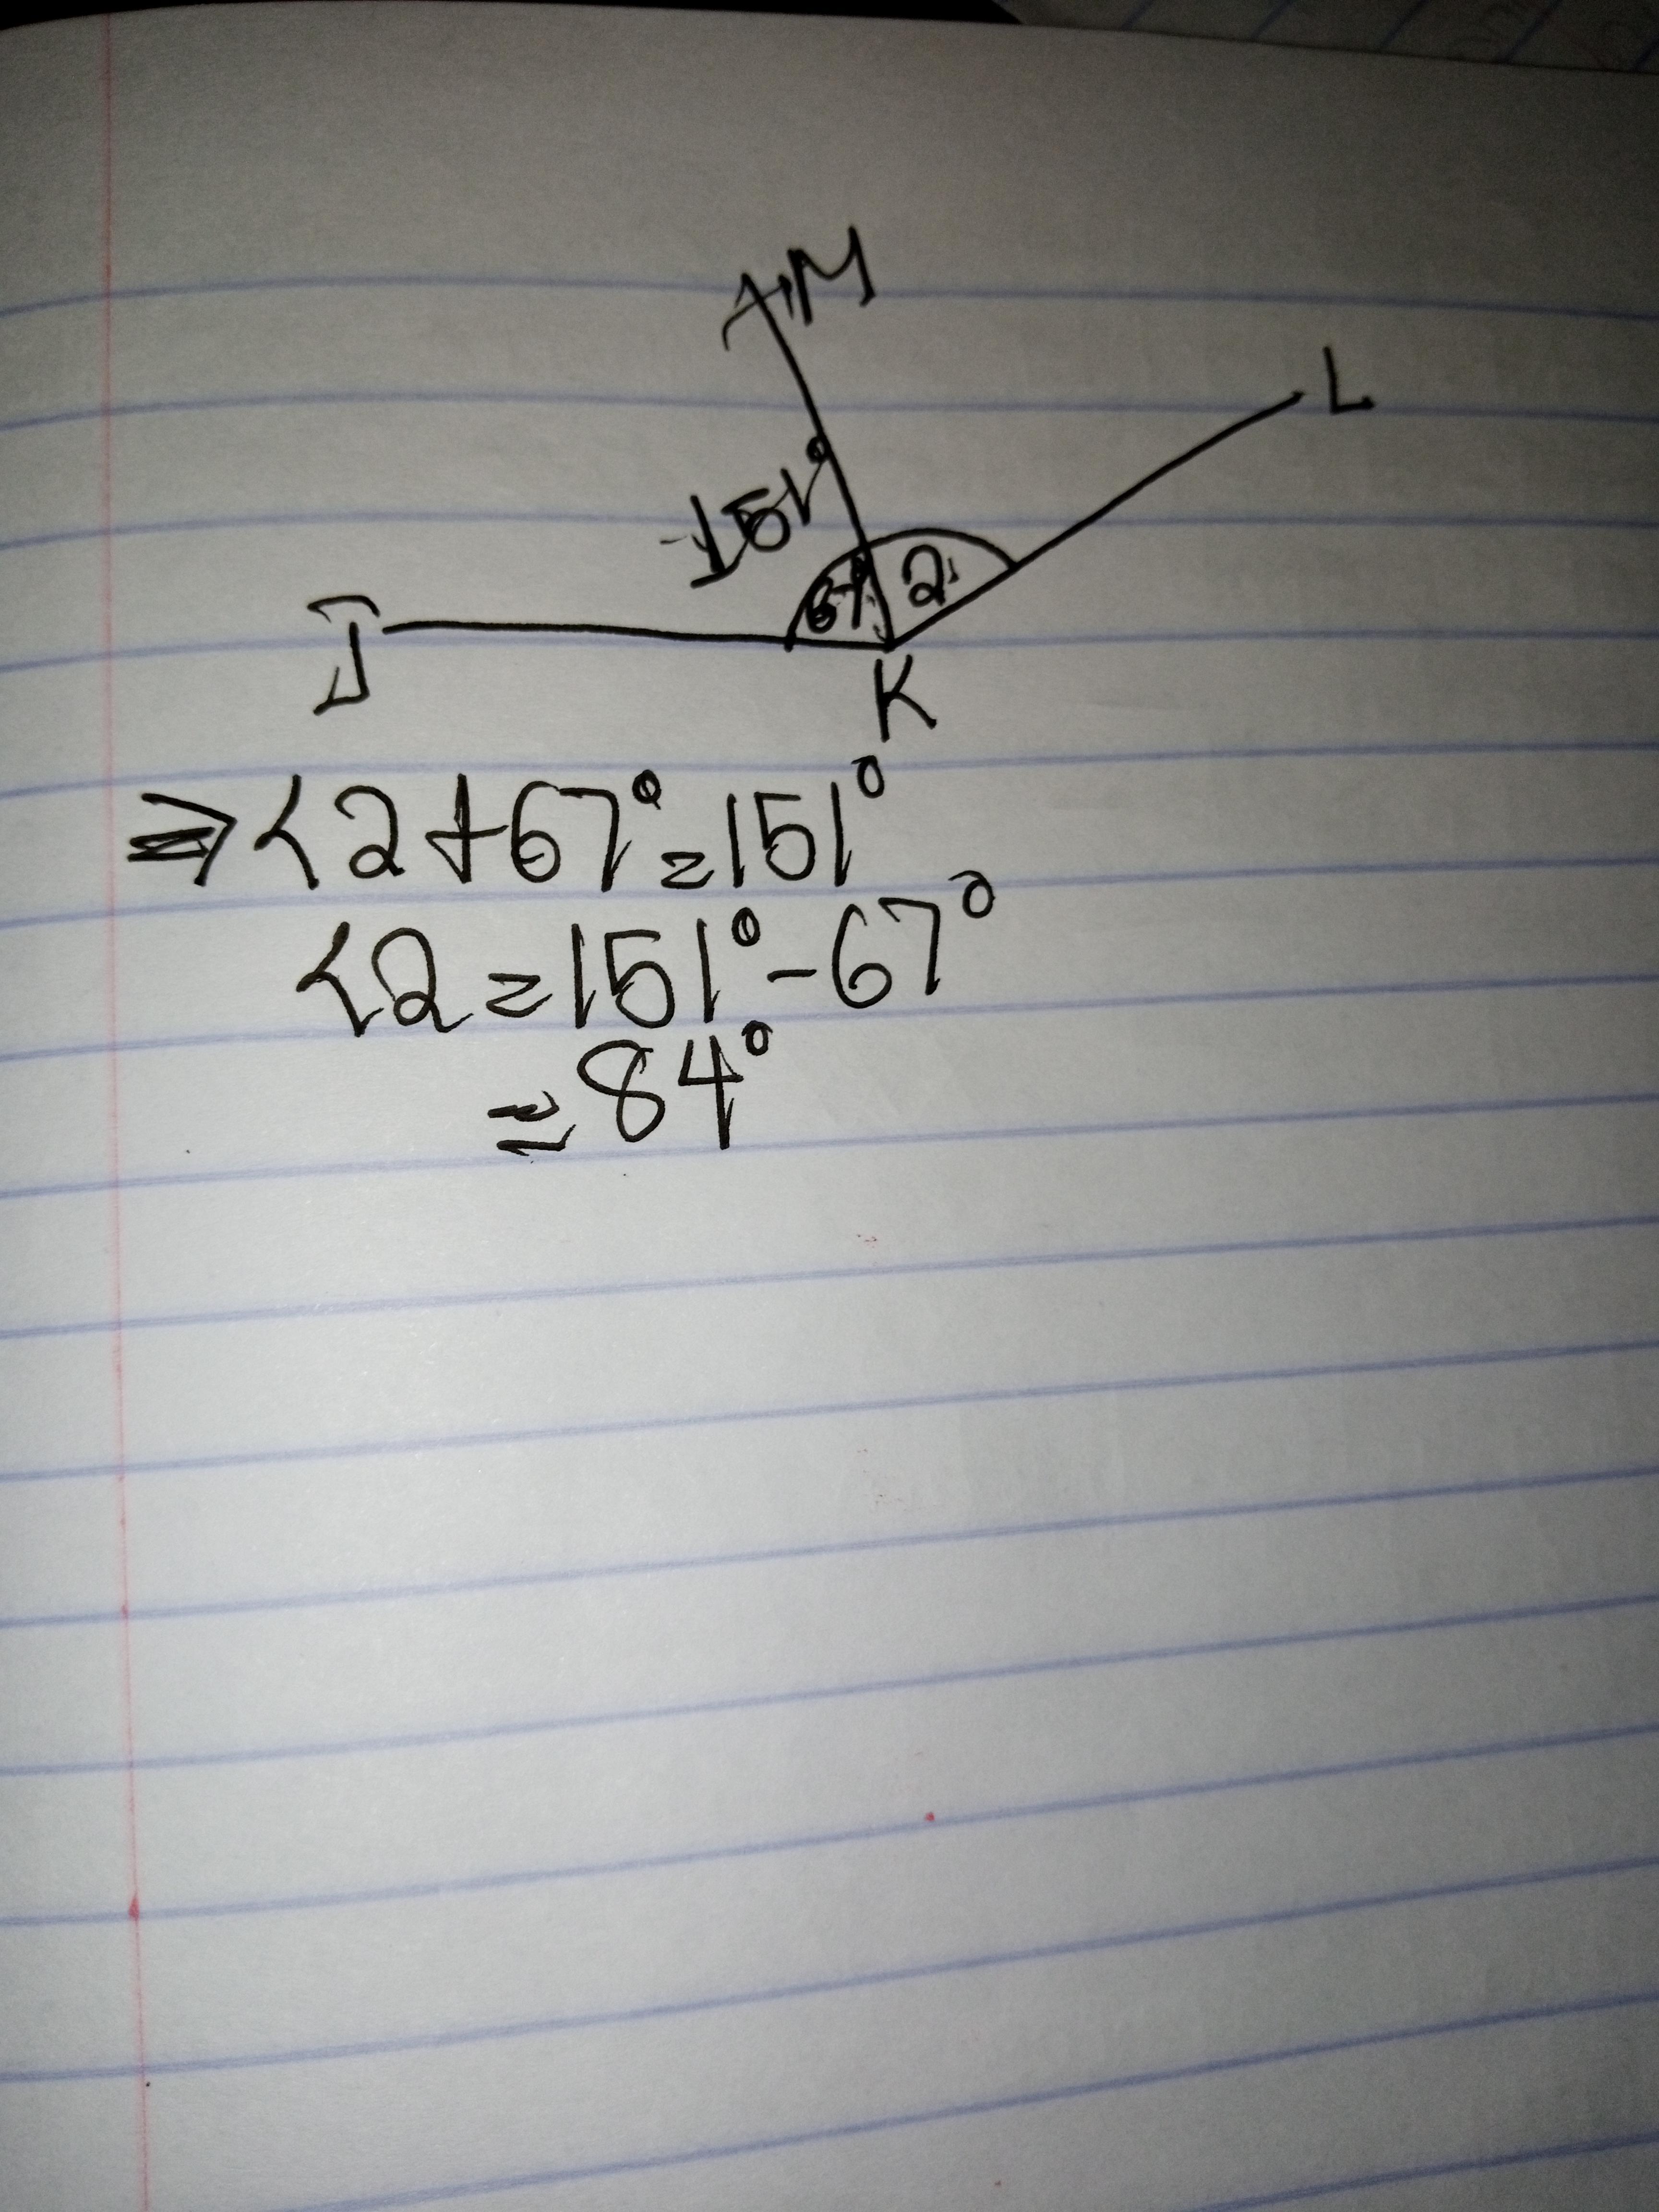 M
L
151°
67°
2
J
K
⇒ <2+67°=151°
<2=151°-67°
=84°